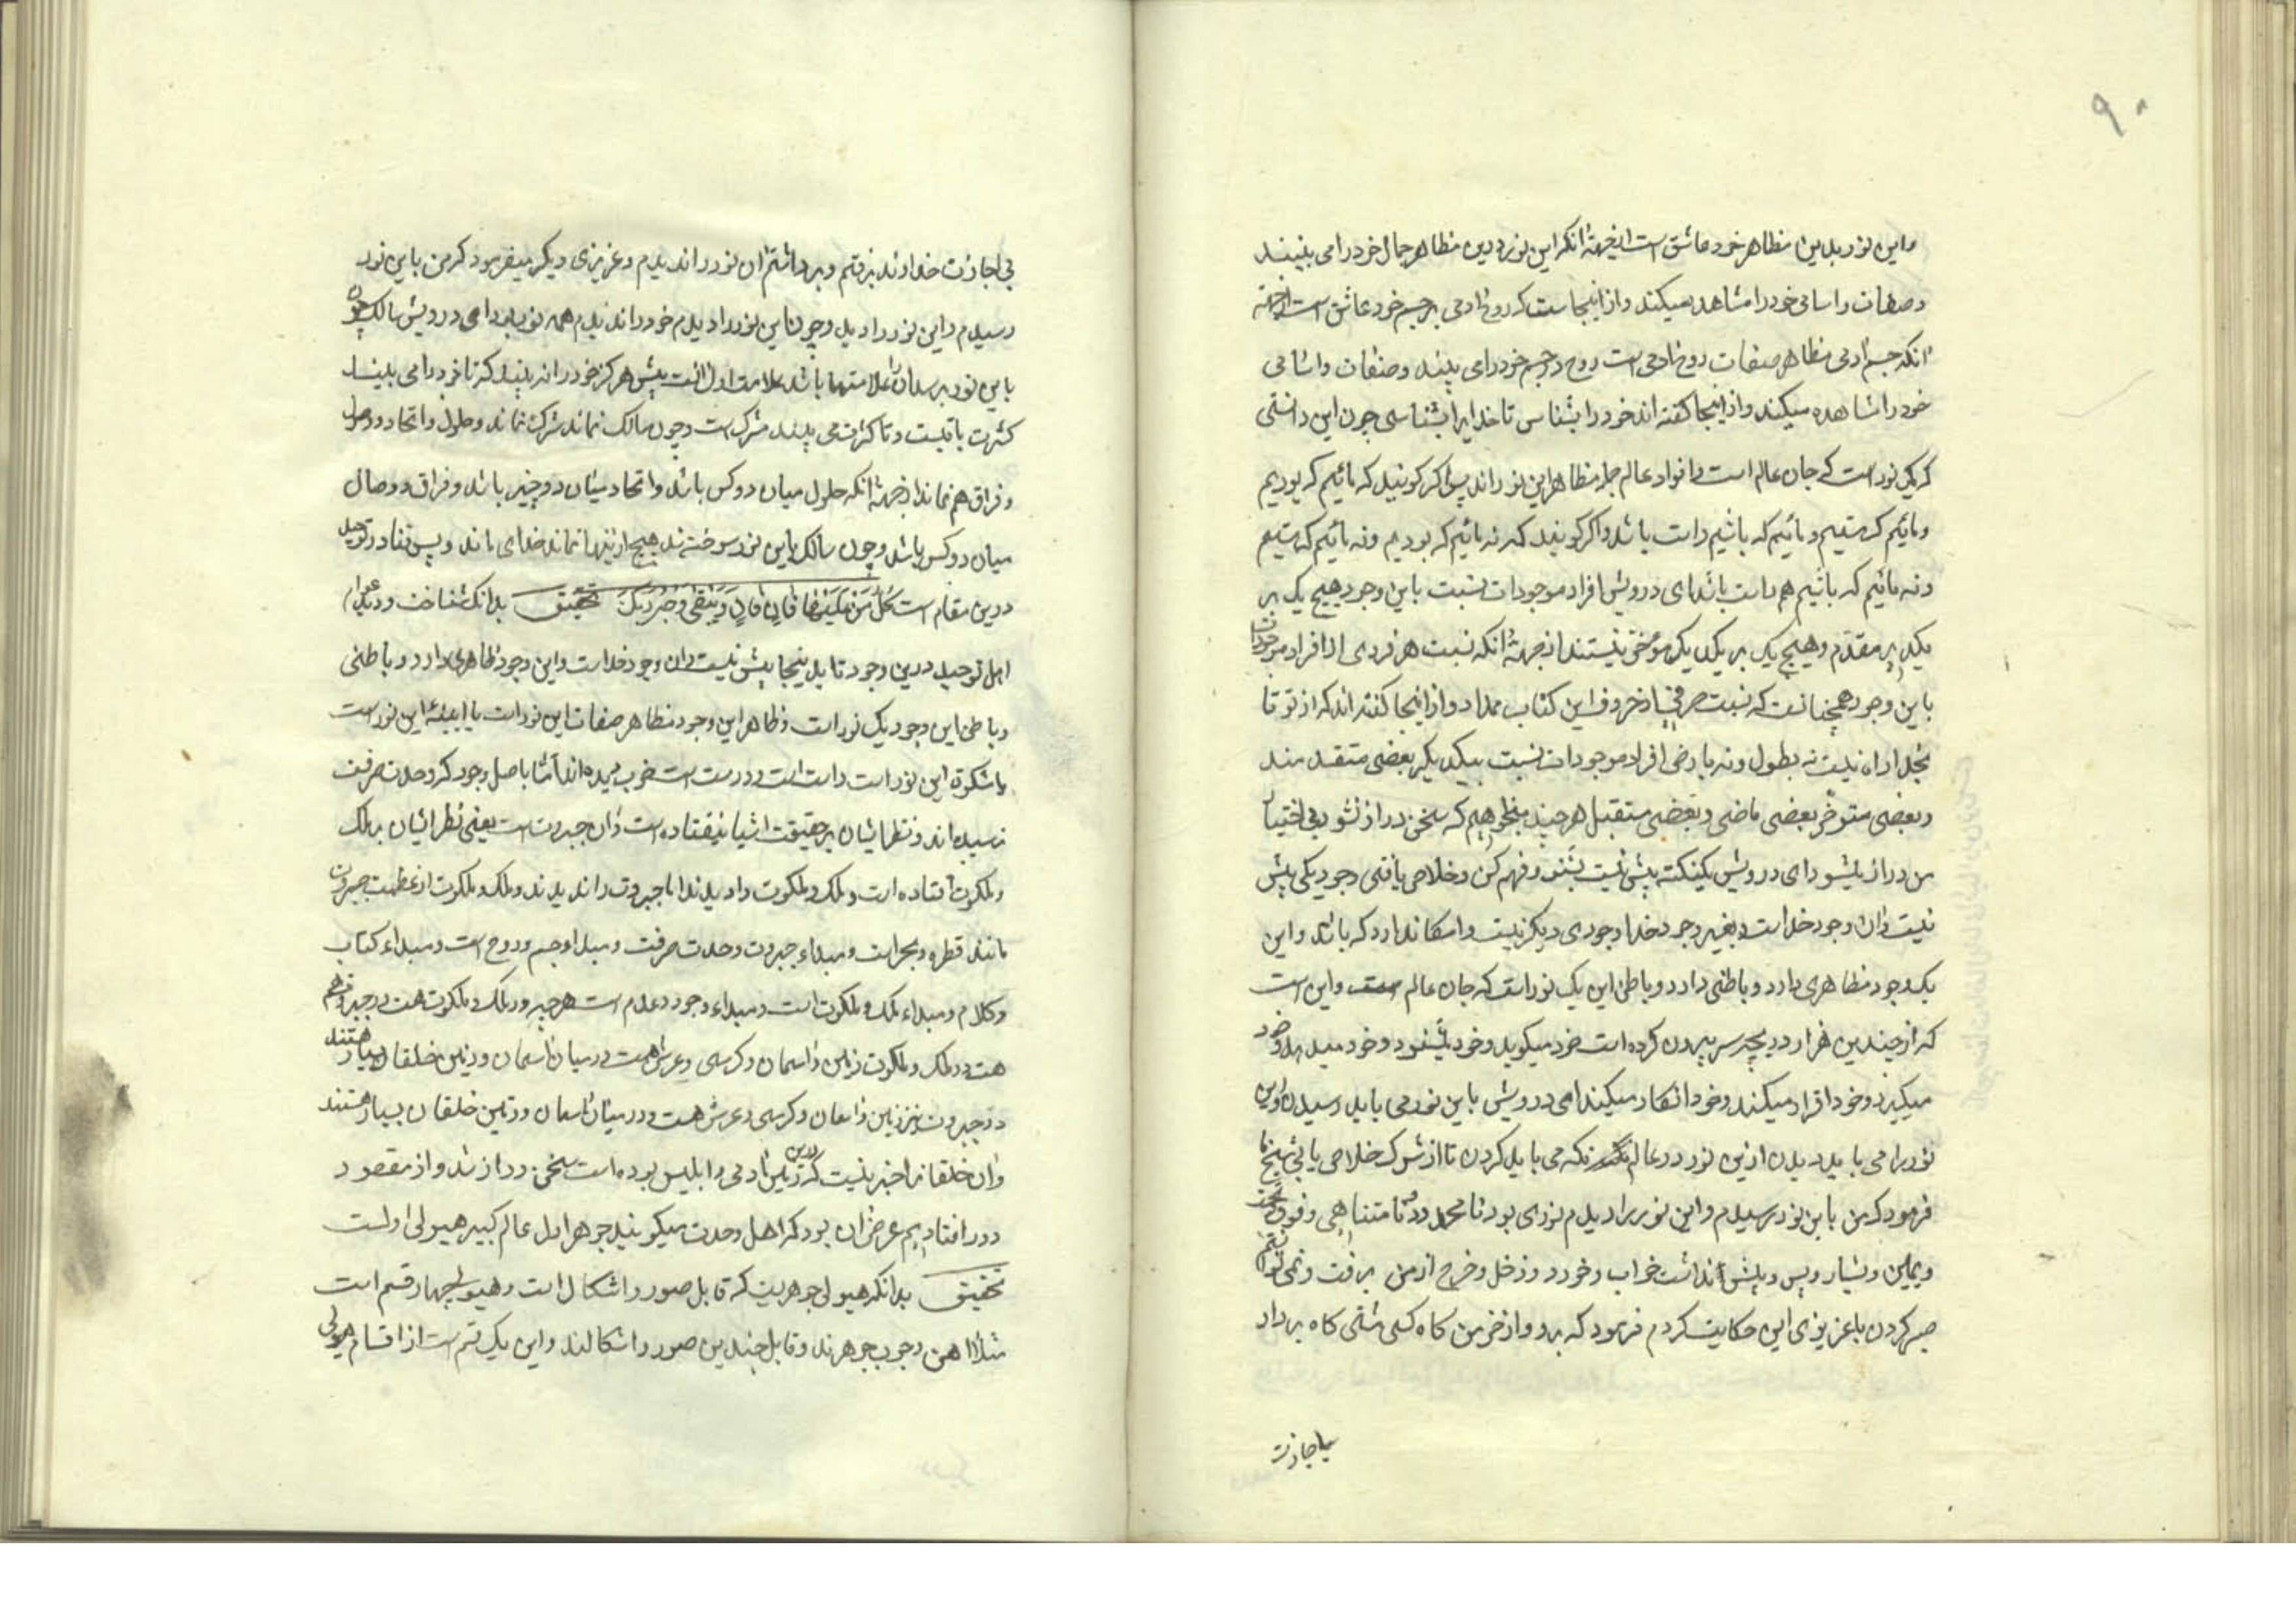 ۹۰
واین نور بدین مظاهر خود عاشق است ازجهة آنکه این نور درین مظاهر جمال خود را می بیند
وصفات واسامی خود را مشاهده میکند واز اینجاست که روح آدمی بر جسم خود عاشق است ازجهة
آنکه جسم آدمی مظاهر صفات روح آدمی است روح در جسم خود را می بیند وصفات واسامی
خود را مشاهده میکند واز اینجا گفته اند خود را بشناس تا خدایرا بشناسی چون این دانستی
که یک نور است که جان عالم است وافراد عالم جمله مظاهر این نوراند پس اگر گویند که مائیم که بودیم
ومائیم که هستیم ومائیم که باشیم راست باشد واگر گویند که نه مائیم که بودیم ونه مائیم که هستیم
ونه مائیم که باشیم هم راست باشد ای درویش افراد موجودات نسبت باین وجود هیچ یک بر
یکدیگر مقدم وهیچ یک بر یکدیگر مؤخر نیستند ازجهة آنکه نسبت هر فردی از افراد موجودات
باین وجود همچنانست که نسبت هر حرفی از حروف این کتاب بمداد واز اینجا گفته اند که از تو تا
بخدا راه نیست نه بطول ونه بعرض افراد موجودات نسبت بیکدیگر بعضی متقدمند
وبعضی متوخر بعضی ماضی وبعضی مستقبل هرچند میخواهم که سخن دراز نشود بی اختیار
من دراز میشود ای درویش یک نکته بیش نیست بشنو وفهم کن وخلاص یافتی وجود یکی بیش
نیست وآن وجود خداست وبغیر وجود خدا وجودی دیگر نیست وامکان ندارد که باشد واین
یک وجود ظاهری دارد وباطنی دارد وباطن این یک نوراست که جان عالم است واین است
که از چندین هزار دریچه سر بیرون کرده است خود میگوید وخود میشنود وخود میدهد وخود
میگیرد وخود اقرار میکند وخود انکار میکند ای درویش باین نور می باید رسیدن واین
نور را می باید دیدن ازین نور در عالم نکه می باید کردن تا از شرک خلاص یابی شیخ ما
فرمود که من باین نور رسیدم واین نور را دیدم نوری بود نامحدود ونامتناهی وفوق وتحت
ویمین ویسار وپس وپیش نداشت خواب وخورد ودخل وخرج از من برفت ونمی توانستم
صبر کردن با عزیزی این حکایت کردم فرمود که برو واز خرمن کاه کسی مشتی کاه بردار
بی اجازت
بی اجازت خداوند برفتم وبرداشتم آن نور را ندیدم وعزیزی دیگر میفرمود که من باین نور
رسیدم واین نور را دیدم وچون این نور را دیدم خود را ندیدم همه نور بود ای درویش سالک چون
باین نور برسد آن را علامتها باشد علامت اول آنست بیش هرگز خود را نه بیند که تا خود را می بیند
کثرت باقیست وتا کثرت می بیند مشرکست وچون سالک نماند شرک نماند وحلول واتحاد ووصل
وفراق هم نماند ازجهة آنکه حلول میان دو کس باشد واتحاد میان دو چیز باشد وفراق ووصال
میان دو کس باشد وچون سالک باین نور سوخته شد هیچ از اینها نماند خدای ماند وبس فنا در توحید
درین مقام است کُلُّ مَن عَلَیْها فانٍ وَیَبْقی وَجْهُ رَبِّکَ تحقیق بدانکه شناخت ودید عوام
اهل توحید درین وجود تا بدینجا بیش نیست وآن وجود خداست واین وجود ظاهری دارد وباطنی
وباطن این وجود یک نوراست وظاهر این وجود مظاهر صفات این نوراست یا آیینهٔ این نوراست
یا مشکوة این نوراست راست است ودرست است خوب دیده اند اما باصل وجود که وحدت صرفست
نرسیده اند ونظر ایشان بر حقیقت اشیا نیفتاده است وآن جبروتست یعنی نظر ایشان بملک
وملکوت افتاده است وملک وملکوت را دیدند اما جبروت را ندیدند وملک وملکوت از عظمت جبروت
مانند قطره وبحراست ومبداء جبروت وحدت صرفست ومبداء جسم وروح است ومبداء کتاب
وکلام ومبداء ملک وملکوت است ومبداء وجود وعدم است هرچه در ملک وملکوت هست در جبروت هم
هست در ملک وملکوت زمین وآسمان وکرسی وعرش هست ودر میان آسمان وزمین خلقان بسیار هستند
در جبروت نیز زمین وآسمان وکرسی وعرش هست ودر میان آسمان وزمین خلقان بسیار هستند
وآن خلقانرا خبر نیست که درین زمین آدمی وابلیس بوده است سخن دراز شد واز مقصود
دور افتادیم غرض آن بود که اهل وحدت میگویند جوهر اول عالم کبیر هیولی اولست
تحقیق بدانکه هیولی جوهریست که قابل صور واشکال است وهیولی چهار قسم است
مثلا آهن وچوب جوهرند وقابل چندین صور واشکالند واین یک قسم است از اقسام هیولی